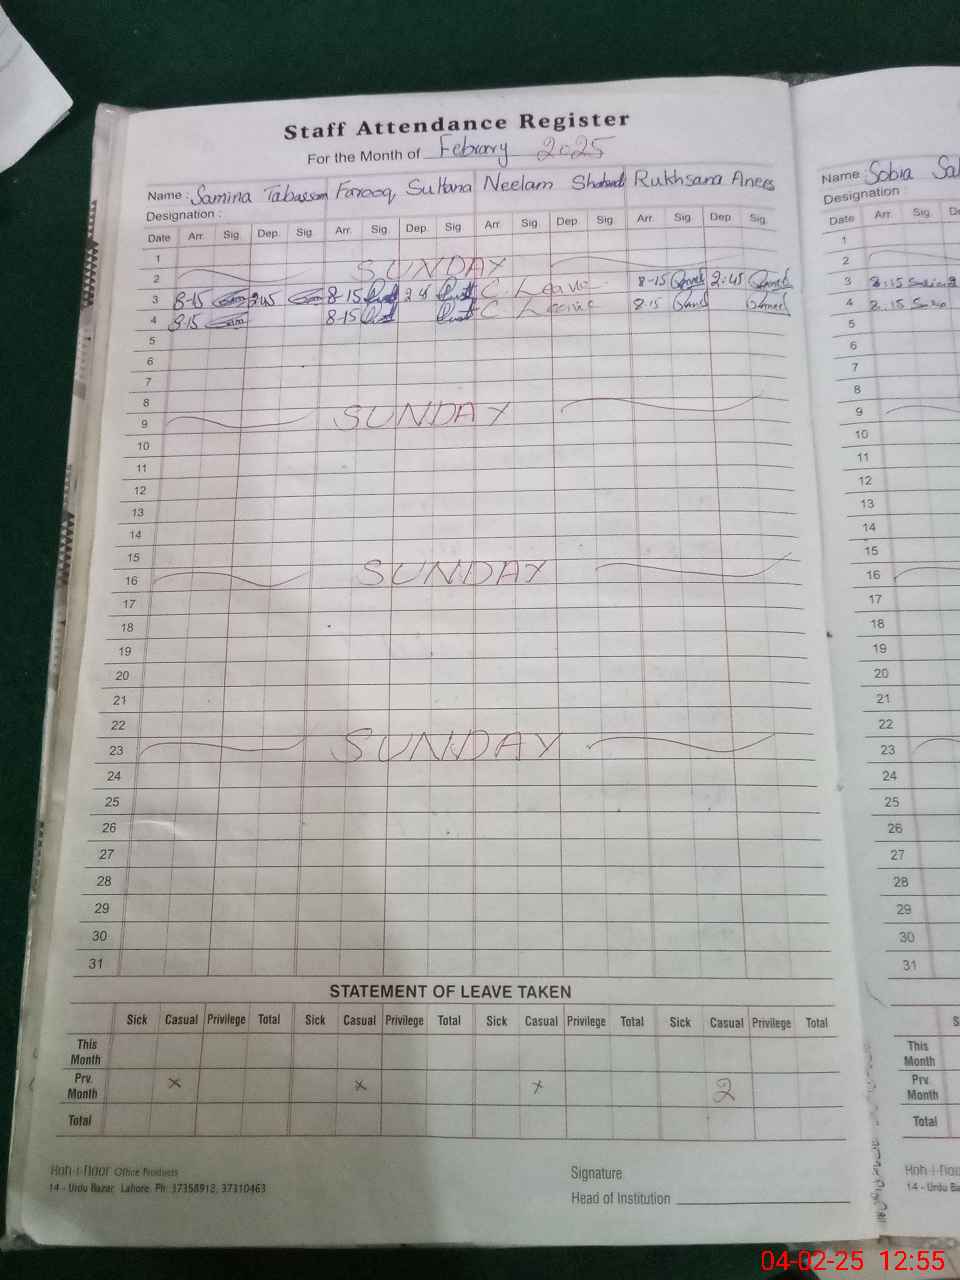 Staff Attendance Register
For the Month of Febrary 2025
Name : Samina Tabassam Farooq Sultana Neelam Rukhsana Anees
Designation :
Date Arr. Sig. Dep. Sig. Arr. Sig. Dep. Sig. Arr. Sig. Dep. Sig. Arr. Sig. Dep. Sig.
1
2 SUNDAY
3 8-15 2:45 8-15 2 45 C. Leave 8-15 2:45
4 8-15 8-15 C. Leave 8:15
5
6
7
8
9 SUNDAY
10
11
12
13
14
15
16 SUNDAY
17
18
19
20
21
22
23 SUNDAY
24
25
26
27
28
29
30
31
STATEMENT OF LEAVE TAKEN
Sick Casual Privilege Total Sick Casual Privilege Total Sick Casual Privilege Total Sick Casual Privilege Total
This Month
Prv. Month x x x 2
Total
Koh-i-Noor Office Products
14 - Urdu Bazar, Lahore. Ph: 37358912, 37310463
Signature
Head of Institution
Name : Sobia
Designation :
Date Arr. Sig.
1
2
3 8:15
4 8:15
5
6
7
8
9
10
11
12
13
14
15
16
17
18
19
20
21
22
23
24
25
26
27
28
29
30
31
This Month
Prv. Month
Total
Koh-i-
14 - Urdu
04-02-25 12:55